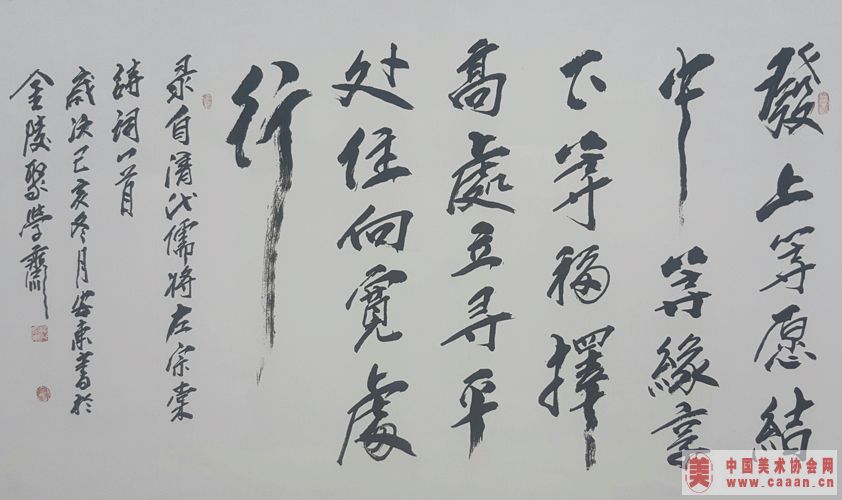 發上等愿結
中等緣享
下等福擇
高處立寻平
处住向寬處
行
录自清代儒将左宗棠
诗词一首
歲次己亥冬月安東書於
金陵聚学齋
中国美术协会网
www.caaan.cn